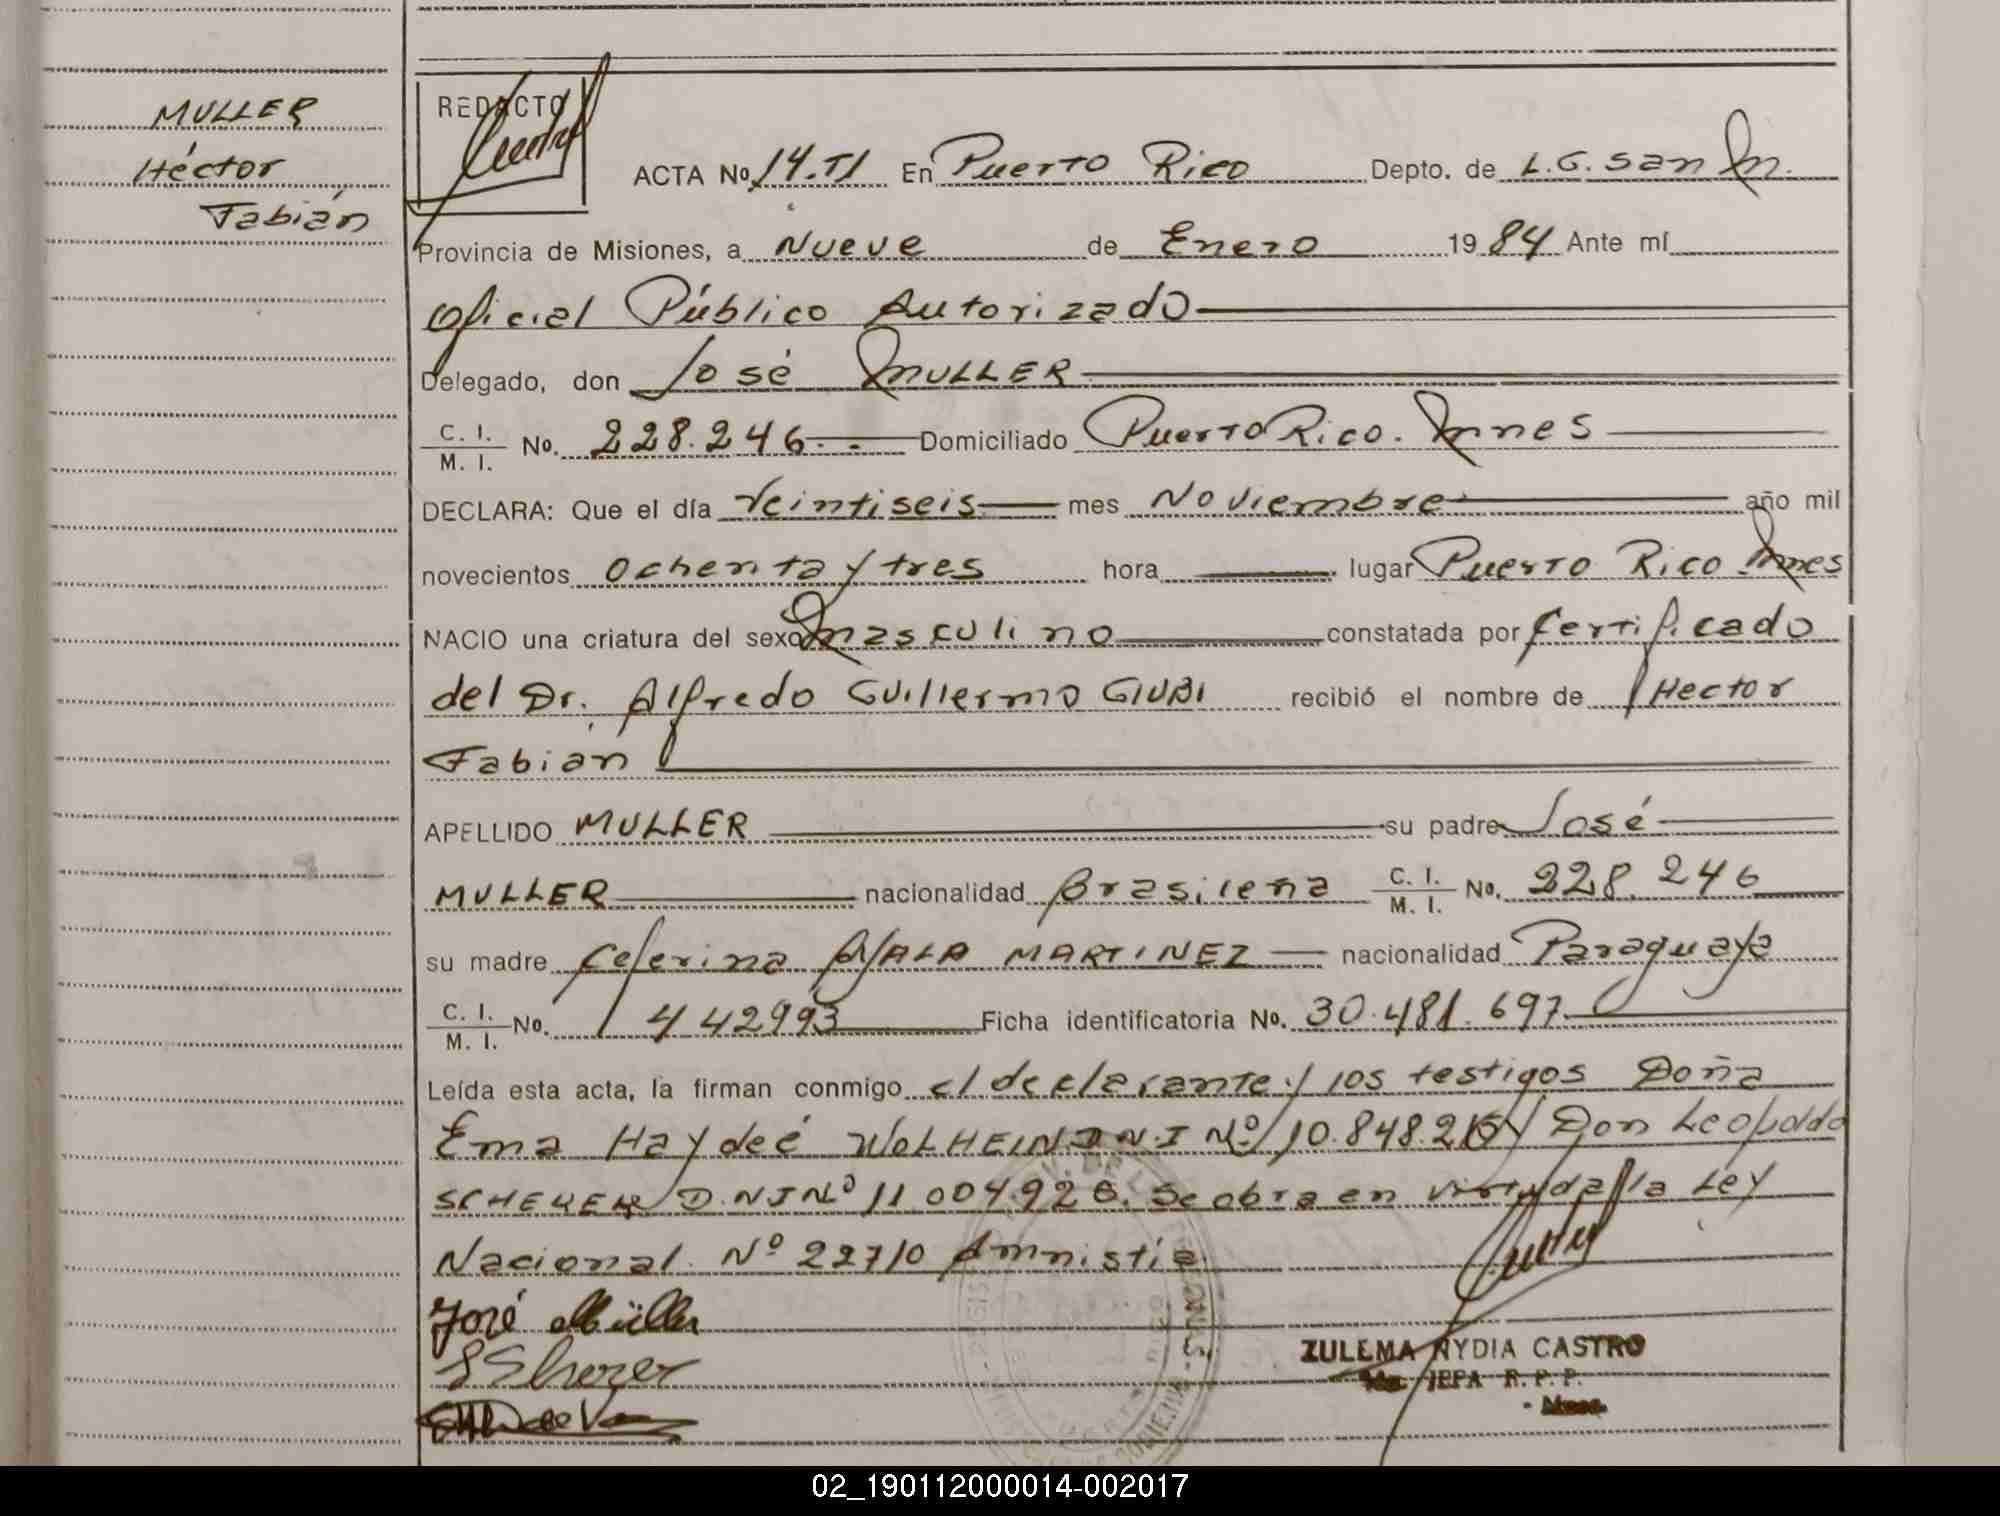 MULLER
Héctor
Fabián
REDACTO
ACTA No. 14.TI En Puerto Rico Depto. de L.G. San M.
Provincia de Misiones, a Nueve de Enero 1984 Ante mí
Oficial Público Autorizado
Delegado, don José MULLER
C. I. / M. I. No. 228.246 Domiciliado Puerto Rico. Mnes
DECLARA: Que el día Veintiseis mes Noviembre año mil
novecientos Ochenta y tres hora lugar Puerto Rico Mnes
NACIO una criatura del sexo Masculino constatada por Certificado
del Dr. Alfredo Guillermo GIUBI recibió el nombre de Hector
Fabián
APELLIDO MULLER su padre José
MULLER nacionalidad Brasileña C. I. / M. I. No. 228.246
su madre Ceferina AYALA MARTINEZ nacionalidad Paraguaya
C. I. / M. I. No. 442993 Ficha identificatoria No. 30.481.697
Leída esta acta, la firman conmigo el declarante y los testigos Doña
Ema Haydeé WOLHEIN D.N.I Nº 10.848.215 y Don Leopoldo
SCHERER D.N.I Nº 11 004.926. Se obra en virtud de la Ley
Nacional Nº 22710 Amnistía.
José Müller
LScherer
ZULEMA NYDIA CASTRO
JEFA R. P. P.
Mnes.
02_190112000014-002017